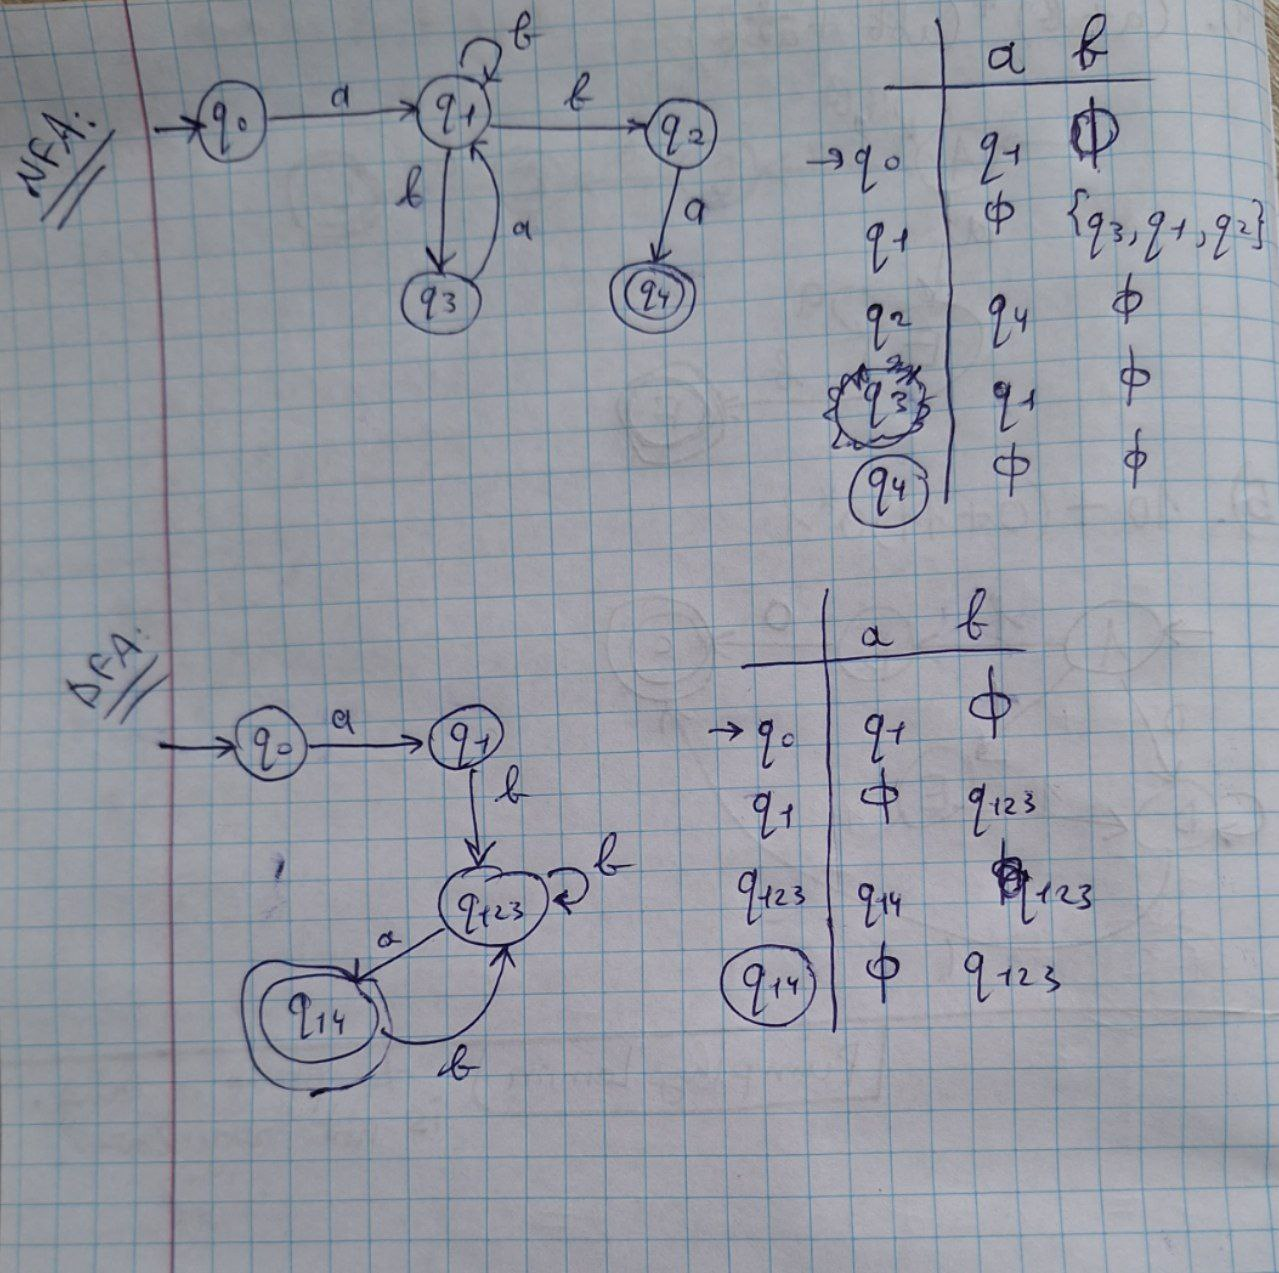 NFA:
q0 a q1 b b q2
b a a
q3 q4
a b
→q0 q1 ϕ
q1 ϕ {q3, q1, q2}
q2 q4 ϕ
q3 q1 ϕ
q4 ϕ ϕ
DFA:
q0 a q1
b
q123 b
a
q14
b
a b
→q0 q1 ϕ
q1 ϕ q123
q123 q14 q123
q14 ϕ q123